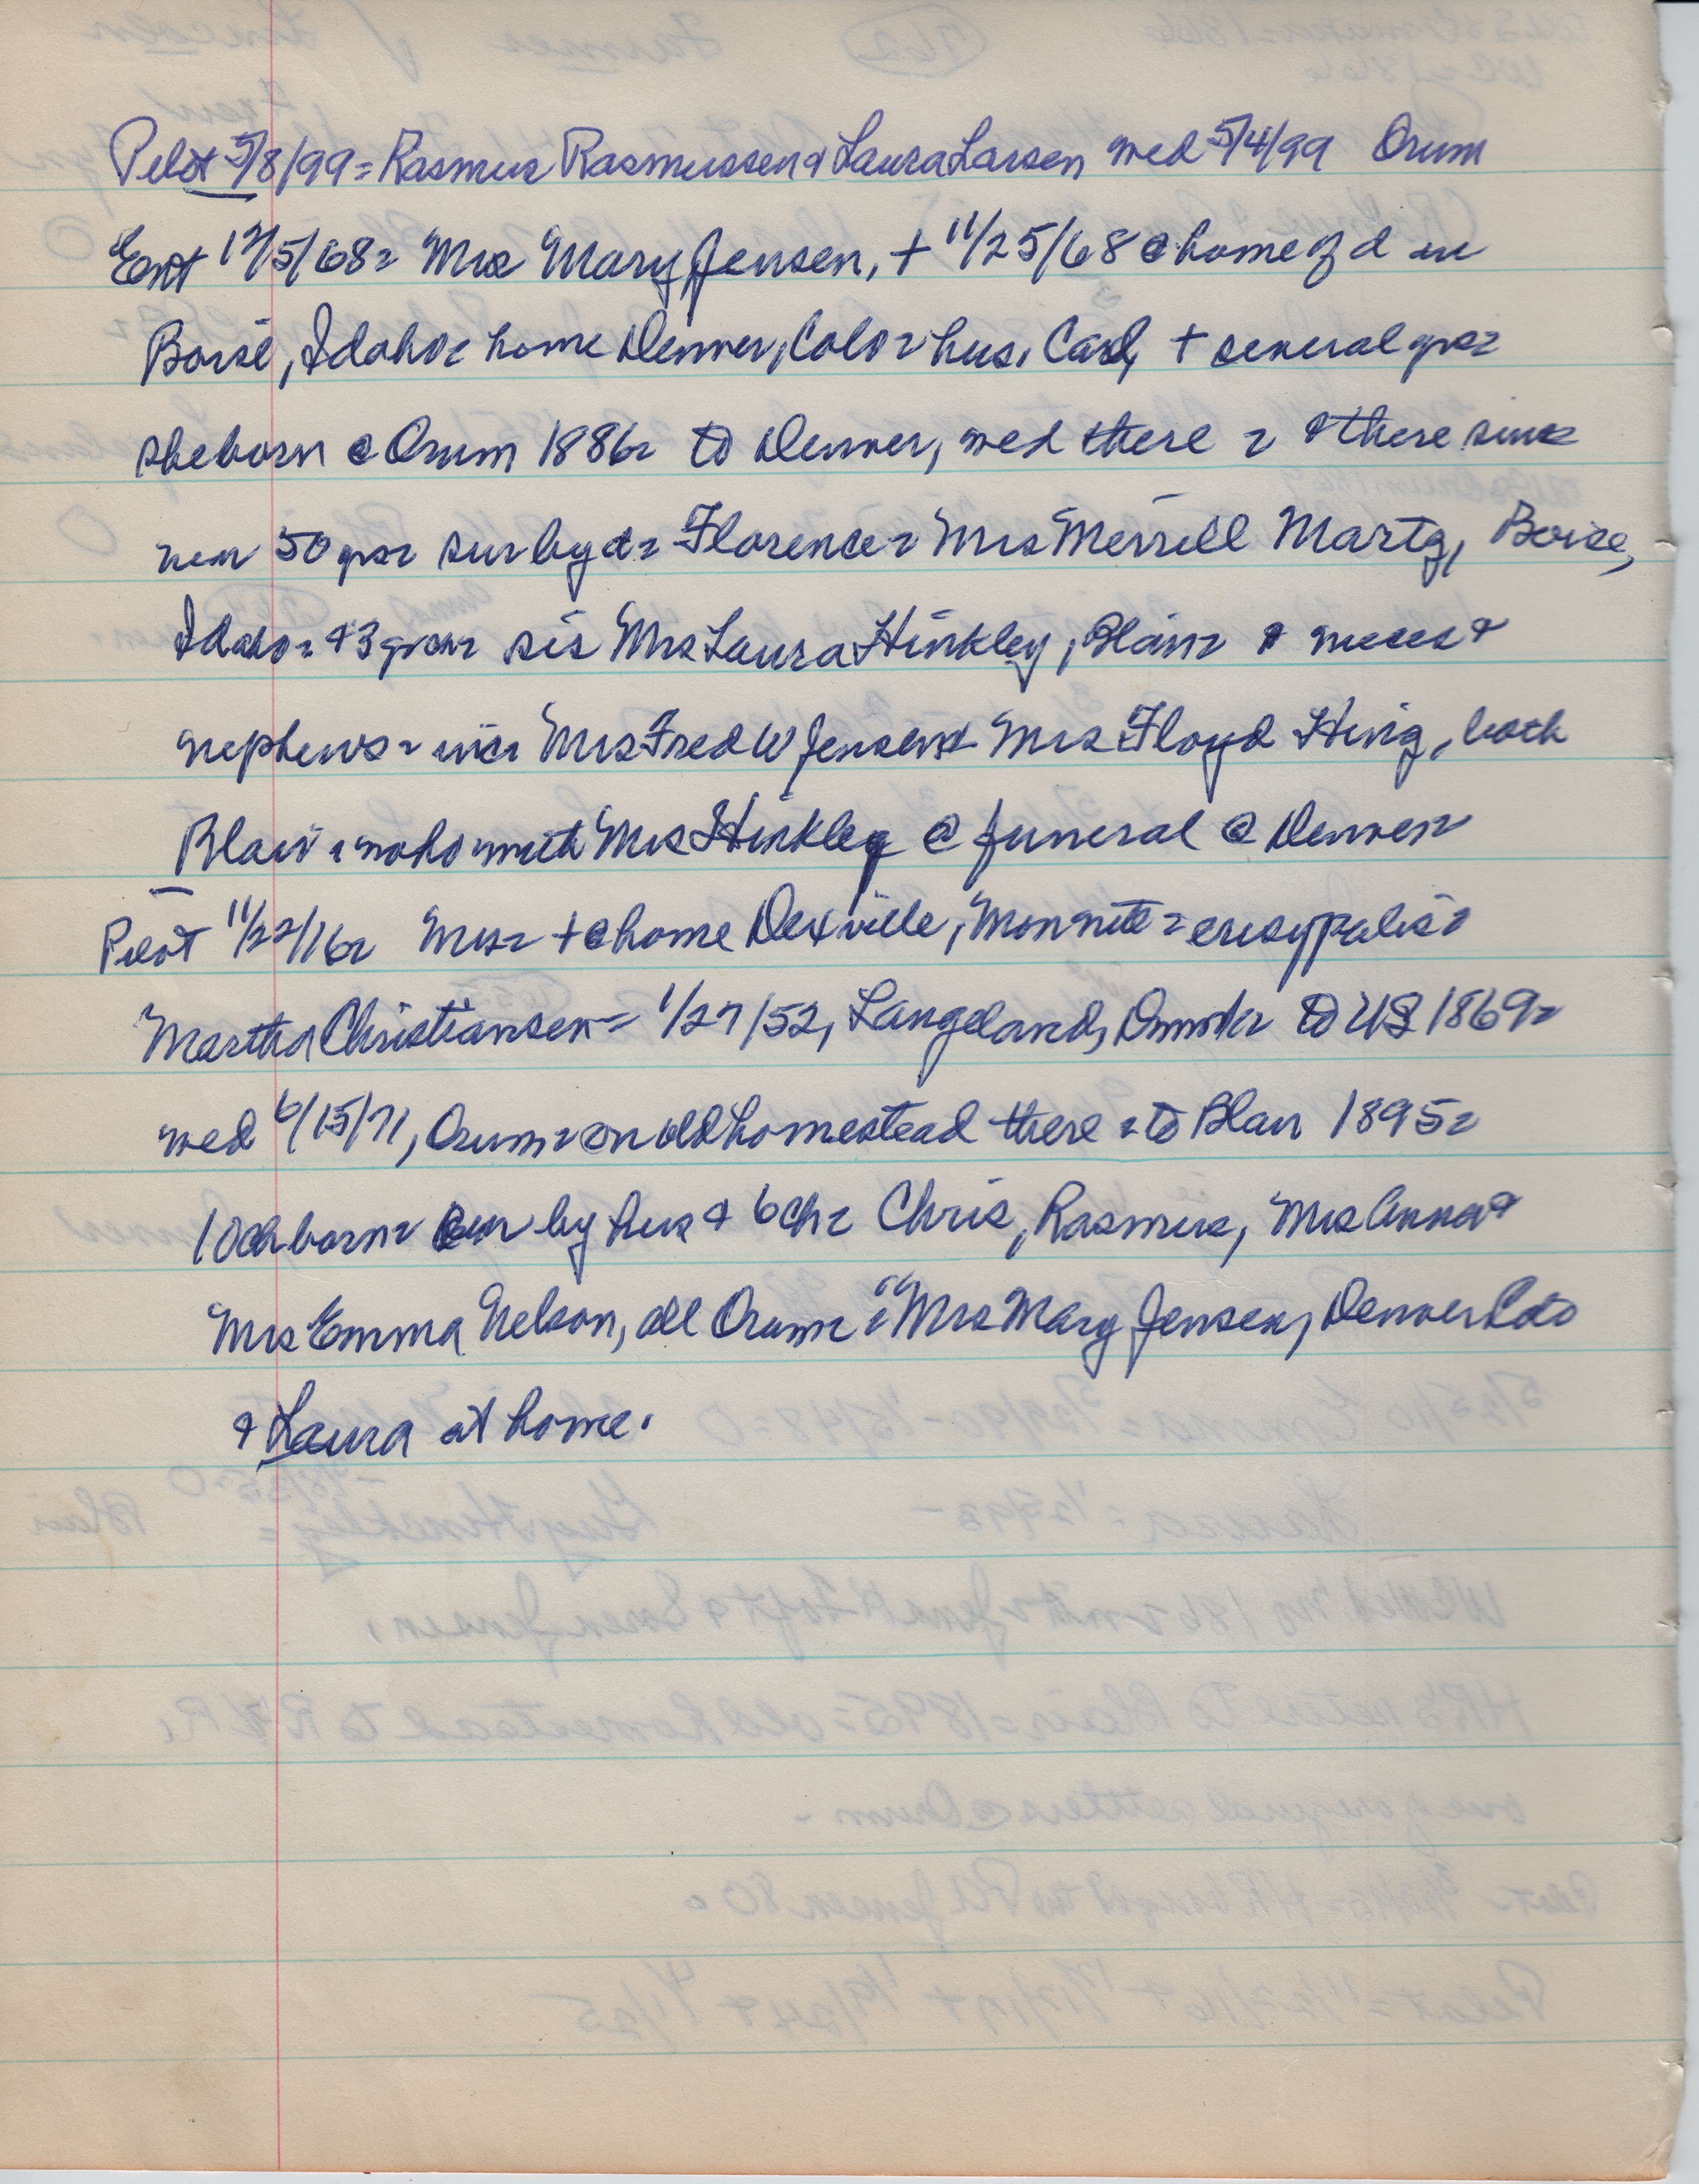 Pilot 5/8/99= Rasmus Rasmussen & Laura Larsen wed 5/4/99 Orum
Ent 12/5/68= Mrs Mary Jensen, + 11/25/68 @ home of d in
Boise, Idaho= home Denver, Colo= hus, Carl, + several yrs=
she born @ Orum 1886= to Denver, wed there = & there since
near 50 yrs= sur by d= Florence= Mrs Merrill Martz, Boise,
Idaho= & 3 sis Mrs Laura Hinkley, Blair= & nieces &
nephews= inc= Mrs Fred W Jensen & Mrs Floyd Hing, both
Blair= who with Mrs Hinkley @ funeral @ Denver=
Pilot 11/22/16= Mrs= + @ home Dexville, Mon nite= erisypelis=
Martha Christiansen= 1/27/52, Langeland, Dnmrk= to US 1869=
wed 6/15/71, Orum= on old homestead there = to Blair 1895=
10 ch born= sur by hus & 6 ch= Chris, Rasmus, Mrs Anna &
Mrs Emma Nelson, all Orum= Mrs Mary Jensen, Denver Colo
& Laura at home.